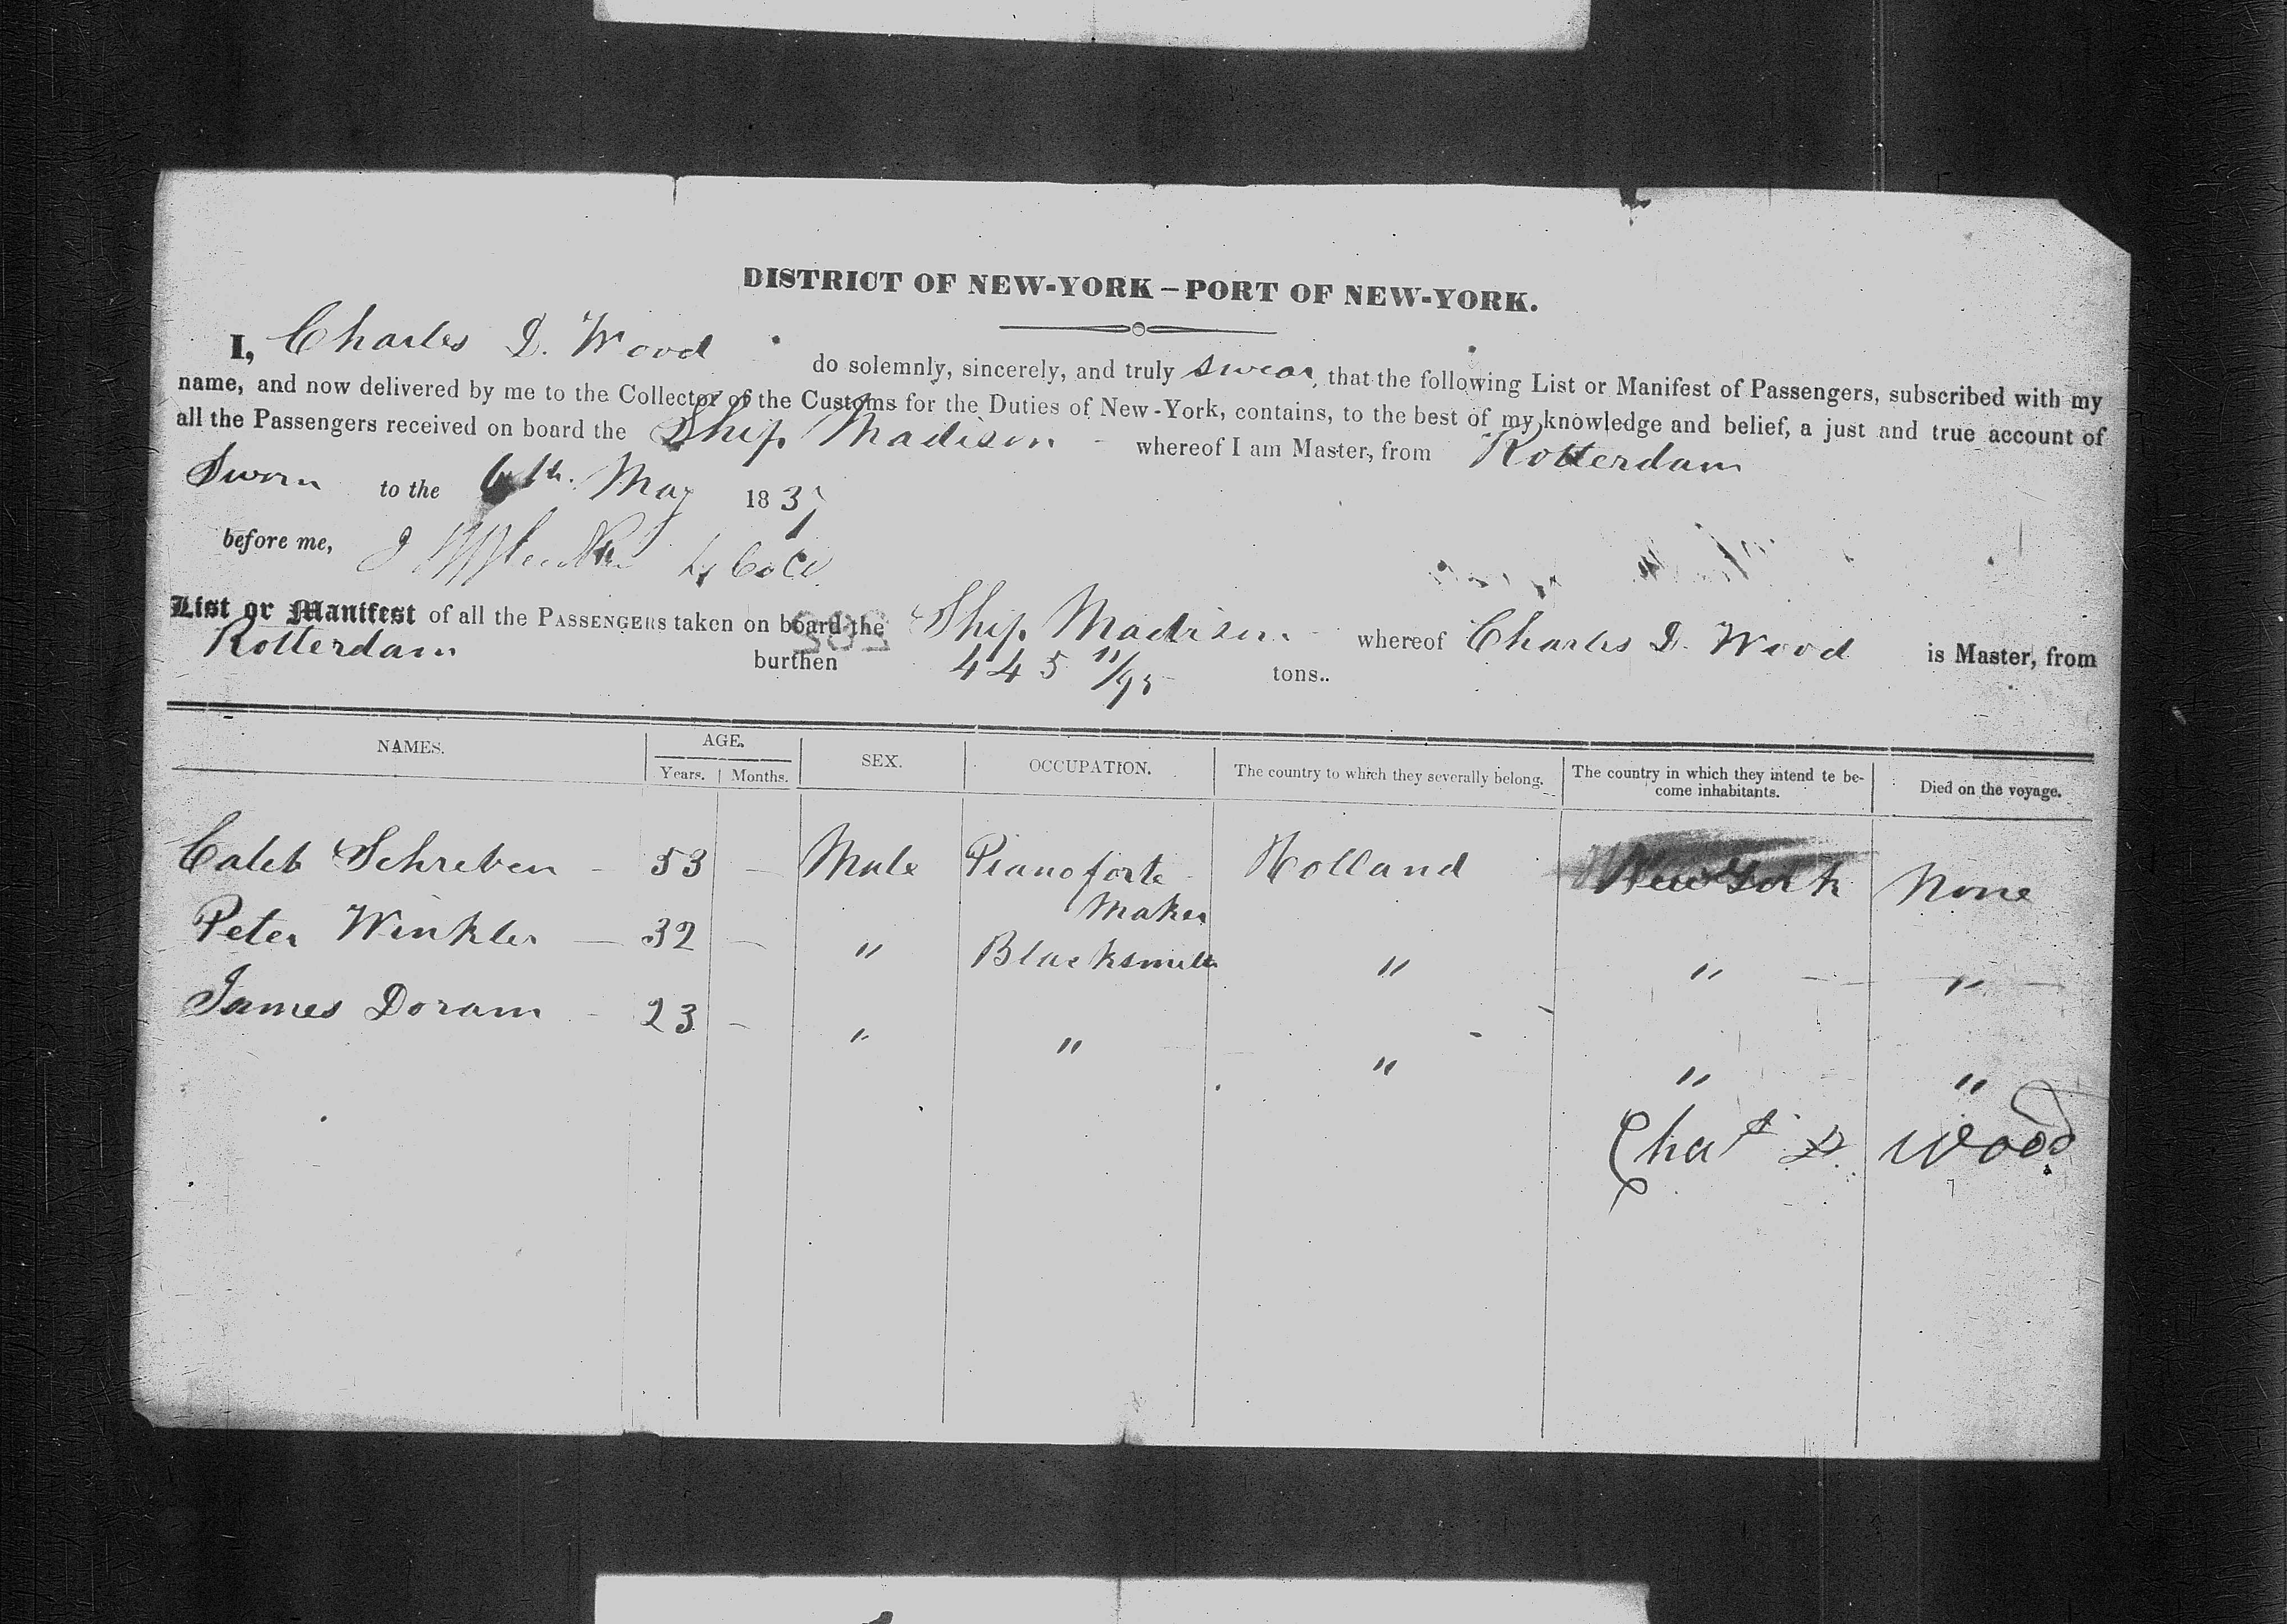 DISTRICT OF NEW-YORK – PORT OF NEW-YORK.
I, Charles D. Wood do solemnly, sincerely, and truly swear, that the following List or Manifest of Passengers, subscribed with my
name, and now delivered by me to the Collector of the Customs for the Duties of New-York, contains, to the best of my knowledge and belief, a just and true account of
all the Passengers received on board the Ship Madison whereof I am Master, from Rotterdam
Sworn to the 6th. May 1837
before me,
List or Manifest of all the PASSENGERS taken on board the Ship Madison whereof Charles D. Wood is Master, from
Rotterdam burthen 445 11/95 tons..
NAMES. AGE. SEX. OCCUPATION. The country to which they severally belong. The country in which they intend te be-
come inhabitants. Died on the voyage.
Years. Months.
Caleb Schreben – 53 – Male Pianoforte Holland New York None
Maker
Peter Winkler – 32 – " Blacksmith " " "
James Doram – 23 – " " " " "
Chas D. Wood